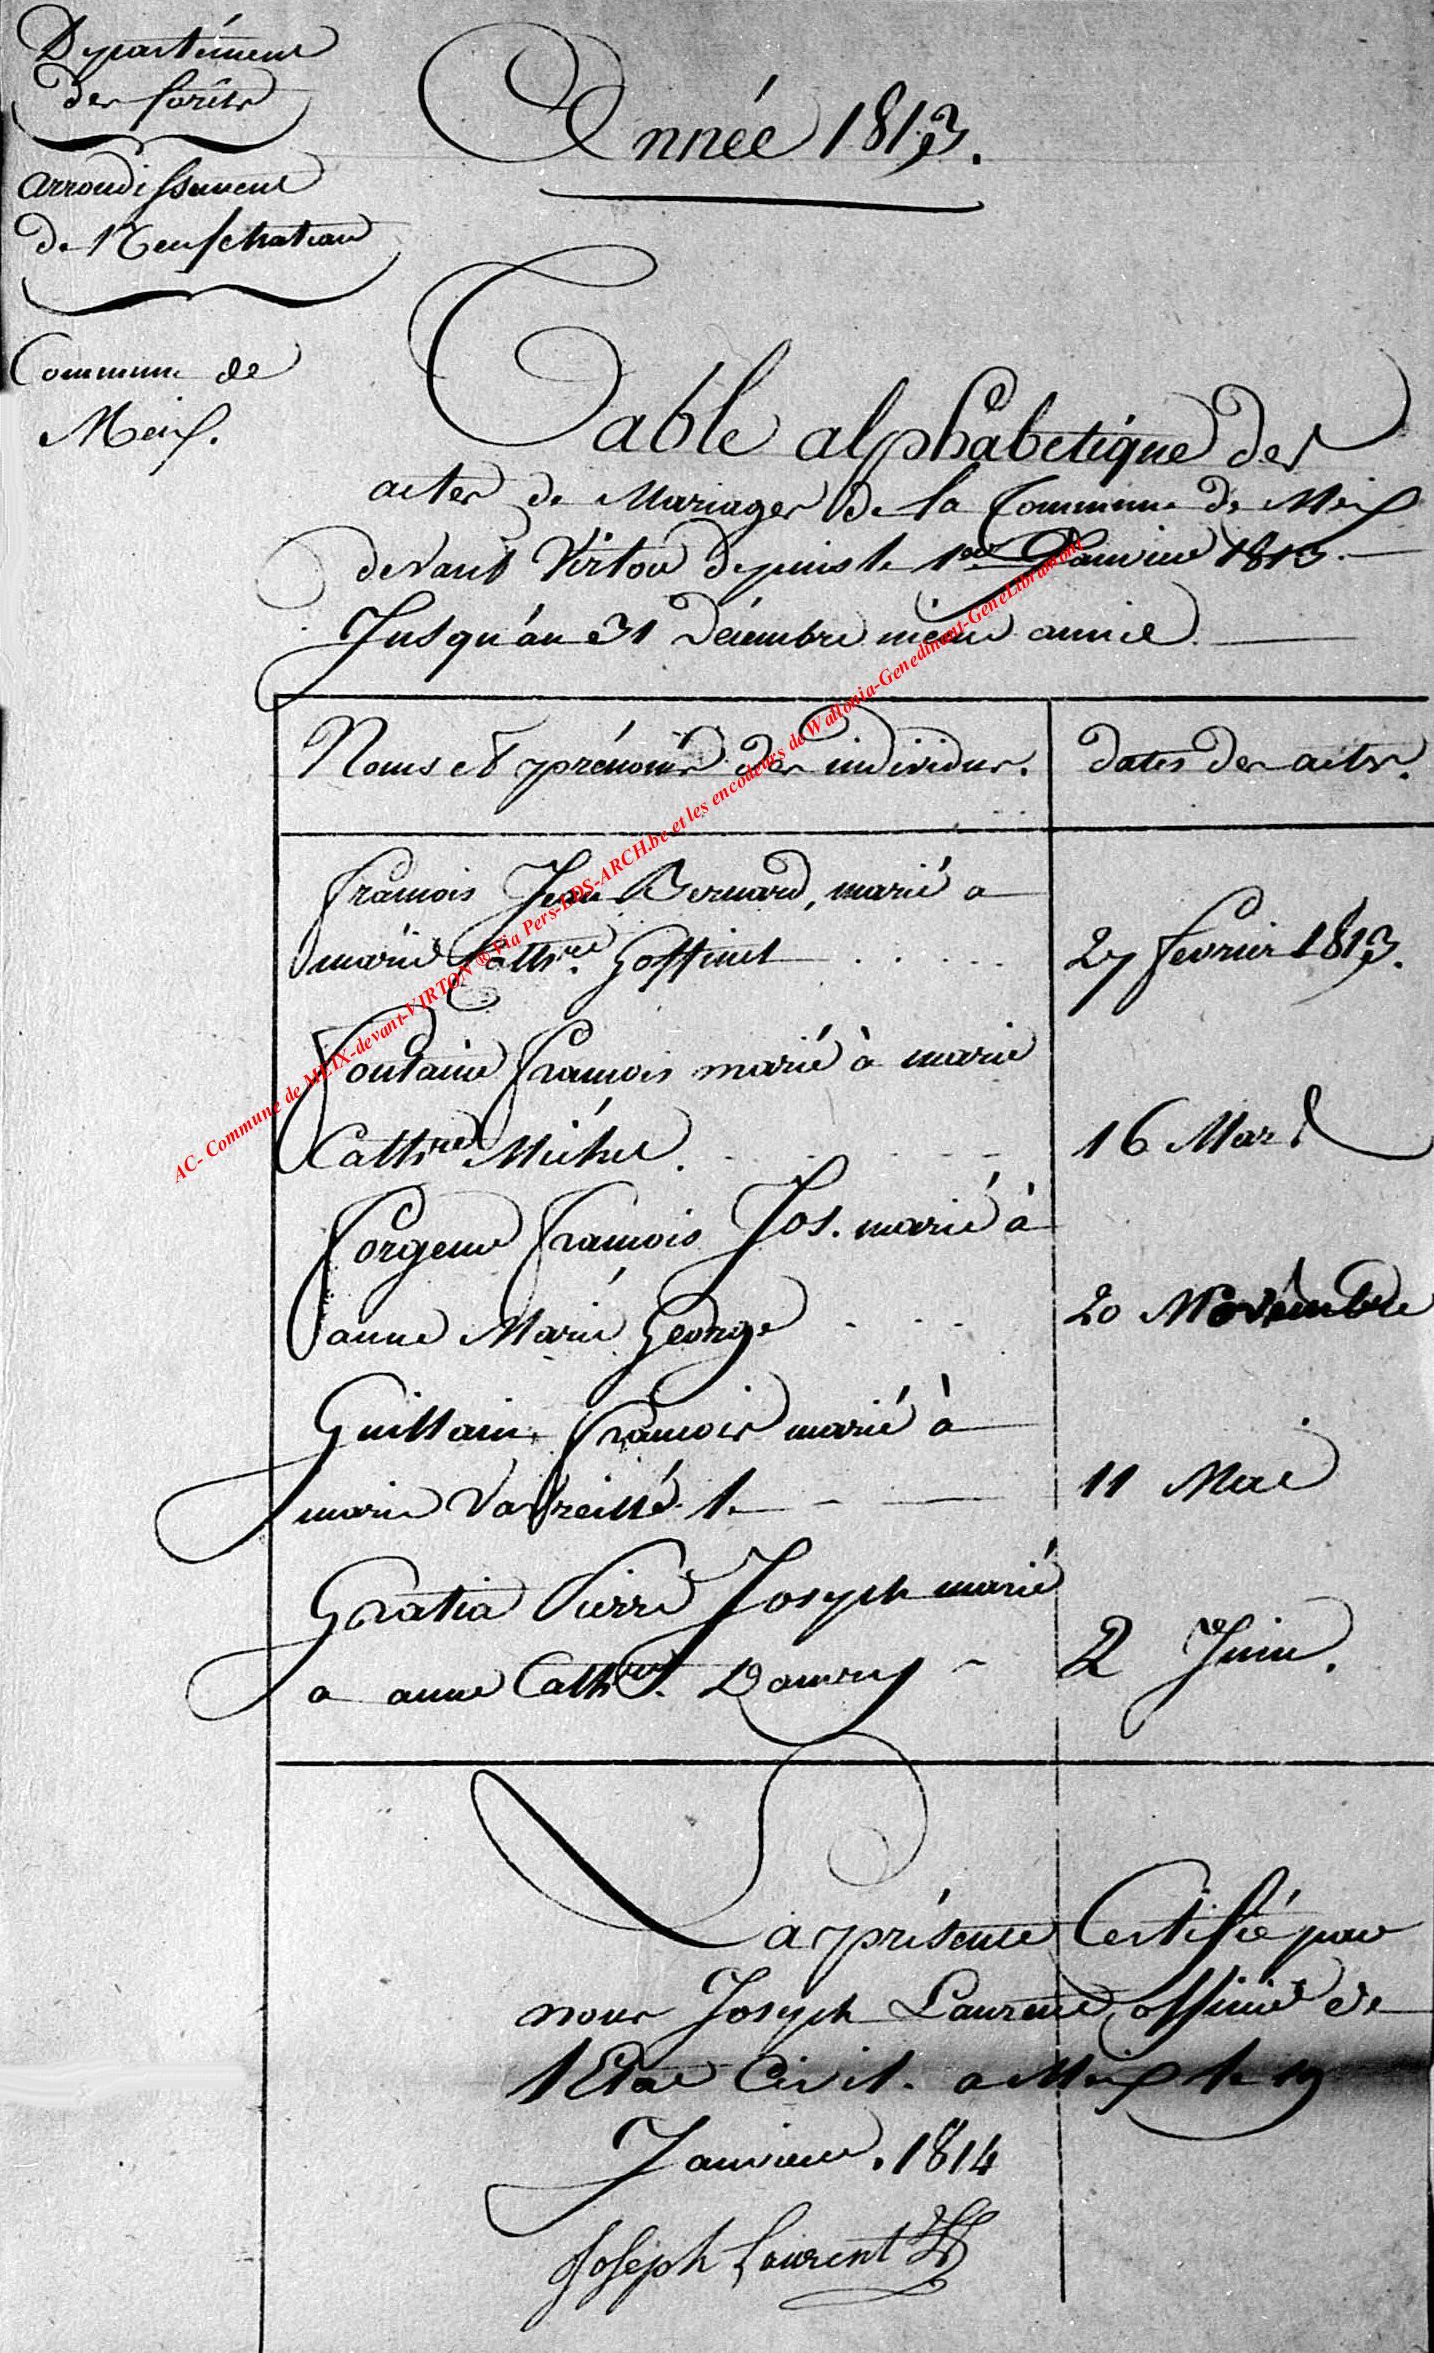 Département
des forêts
arrondissement
de Neufchateau
Commune de
Meix.
Année 1813.
Table alphabetique des
actes de Mariages de la Commune de Meix
devant Virton depuis le 1er Janvier 1813.
Jusqu'au 31 Décembre même année
Noms et prénoms des individus. dates des actes.
francois Jean Bernard, marié a
marie Cathne. Goffinet 27 fevrier 1813.
Fontaine francois marié à marie
Cathne Michel. 16 Mars
Forgeur francois Jos. marié à
anne Marie George 20 Novembre
Guillain francois marié à
marie 11 Mai
Gratia Pierre Joseph marié
a anne Cathne. Damry 2 Juin.
La présente Certifié par
nous Joseph Laurent officier de
l'Etat Civil. a Meix le 19
Janvier. 1814
Joseph Laurent
AC- Commune de MEIX-devant-VIRTON ® Via Pers-LDS-ARCH.be et les encodeurs de Wallonia-Genedinant-GeneLibramont